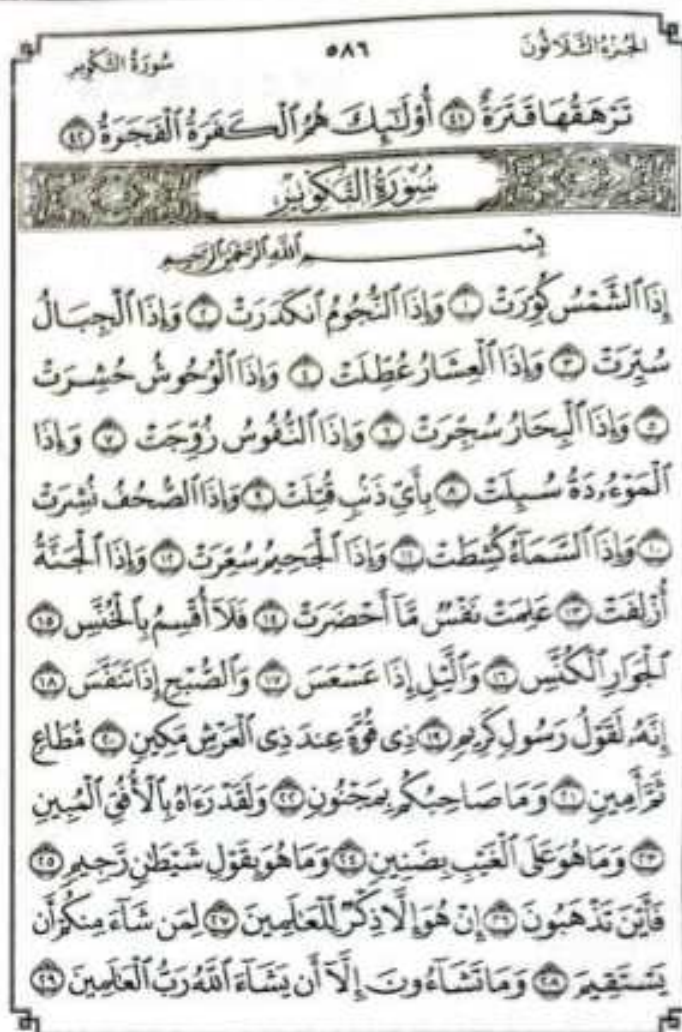 الجزء الثلاثون ٥٨٦ سورة التكوير
تَرْهَقُهَا قَتَرَةٌ ٤١ أُوْلَٰٓئِكَ هُمُ ٱلْكَفَرَةُ ٱلْفَجَرَةُ ٤٢
سُورَةُ التَّكْوِيرِ
بِسْمِ ٱللَّهِ ٱلرَّحْمَٰنِ ٱلرَّحِيمِ
إِذَا ٱلشَّمْسُ كُوِّرَتْ ١ وَإِذَا ٱلنُّجُومُ ٱنكَدَرَتْ ٢ وَإِذَا ٱلْجِبَالُ
سُيِّرَتْ ٣ وَإِذَا ٱلْعِشَارُ عُطِّلَتْ ٤ وَإِذَا ٱلْوُحُوشُ حُشِرَتْ
٥ وَإِذَا ٱلْبِحَارُ سُجِّرَتْ ٦ وَإِذَا ٱلنُّفُوسُ زُوِّجَتْ ٧ وَإِذَا
ٱلْمَوْءُۥدَةُ سُئِلَتْ ٨ بِأَيِّ ذَنۢبٍ قُتِلَتْ ٩ وَإِذَا ٱلصُّحُفُ نُشِرَتْ
١٠ وَإِذَا ٱلسَّمَآءُ كُشِطَتْ ١١ وَإِذَا ٱلْجَحِيمُ سُعِّرَتْ ١٢ وَإِذَا ٱلْجَنَّةُ
أُزْلِفَتْ ١٣ عَلِمَتْ نَفْسٌ مَّآ أَحْضَرَتْ ١٤ فَلَآ أُقْسِمُ بِٱلْخُنَّسِ ١٥
ٱلْجَوَارِ ٱلْكُنَّسِ ١٦ وَٱلَّيْلِ إِذَا عَسْعَسَ ١٧ وَٱلصُّبْحِ إِذَا تَنَفَّسَ ١٨
إِنَّهُۥ لَقَوْلُ رَسُولٍ كَرِيمٍ ١٩ ذِى قُوَّةٍ عِندَ ذِى ٱلْعَرْشِ مَكِينٍ ٢٠ مُّطَاعٍ
ثَمَّ أَمِينٍ ٢١ وَمَا صَاحِبُكُم بِمَجْنُونٍ ٢٢ وَلَقَدْ رَءَاهُ بِٱلْأُفُقِ ٱلْمُبِينِ
٢٣ وَمَا هُوَ عَلَى ٱلْغَيْبِ بِضَنِينٍ ٢٤ وَمَا هُوَ بِقَوْلِ شَيْطَٰنٍ رَّجِيمٍ ٢٥
فَأَيْنَ تَذْهَبُونَ ٢٦ إِنْ هُوَ إِلَّا ذِكْرٌ لِّلْعَٰلَمِينَ ٢٧ لِمَن شَآءَ مِنكُمْ أَن
يَسْتَقِيمَ ٢٨ وَمَا تَشَآءُونَ إِلَّآ أَن يَشَآءَ ٱللَّهُ رَبُّ ٱلْعَٰلَمِينَ ٢٩